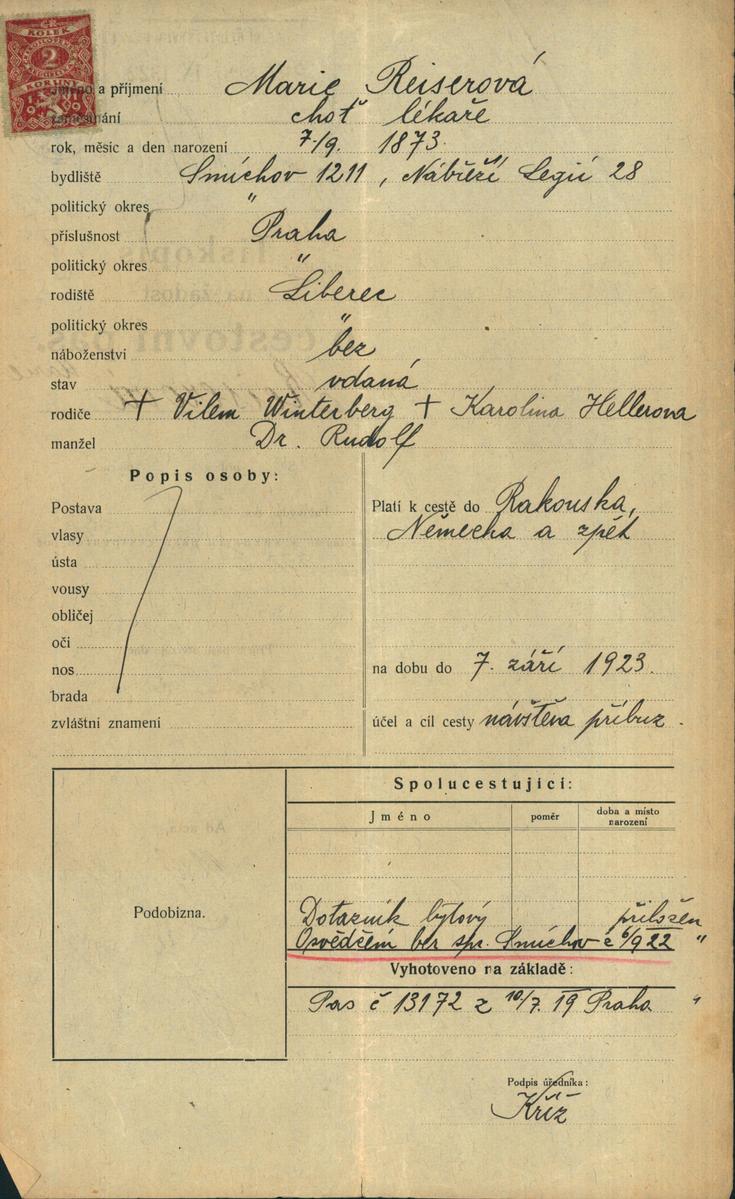 KOLEK
2
KORUNY
jméno a příjmení Marie Reiserová
zaměstnání choť lékaře
rok, měsíc a den narození 7/9. 1873.
bydliště Smíchov 1211, Nábřeží Legií 28
politický okres "
příslušnost Praha
politický okres "
rodiště Liberec
politický okres "
náboženství bez
stav vdaná
rodiče + Vilem Winterberg + Karolina Hellerova
manžel Dr. Rudolf
Popis osoby:
Postava
vlasy
ústa
vousy
obličej
oči
nos
brada
zvláštní znamení
Platí k cestě do Rakouska,
Německa a zpět
na dobu do 7. září 1923.
účel a cíl cesty návštěva příbuz.
Podobizna.
Spolucestující:
Jméno poměr doba a místo narození
Dotazník bytový přiložen
Osvědčení ber spr. Smíchov z 6/9 22 "
Vyhotoveno na základě:
Pas č 13172 z 10/7. 19 Praha "
Podpis úředníka:
Kříž